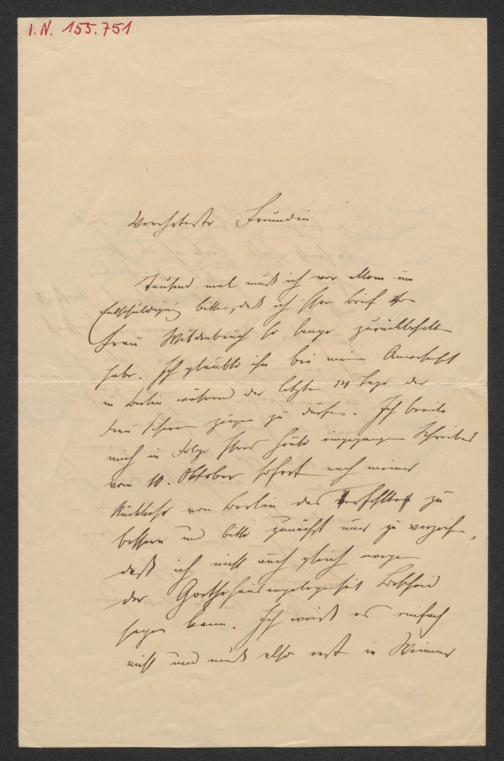 I.N. 155.751
Verehrteste Freundin
Tausend mal muß ich vor allem um
Entschuldigung bitten, daß ich Ihren Brief von
Frau Wildenbruch so lange zurückbehalten
habe. Ich glaubte ihn bei meiner Anwesenheit
in Berlin während der letzten 14 Tage der
Frau zeigen zu dürfen. Ich beeile
mich in Folge Ihres heute eingegangenen Schreibens
vom 10. Oktober sofort nach meiner
Rückkehr von Berlin das zu
bessern und bitte zunächst mir zu verzeihen,
daß ich nicht auch gleich wegen
der Goethehausangelegenheit Bescheid
sagen kann. Ich weiß es einfach
nicht und muß also erst in Weimar